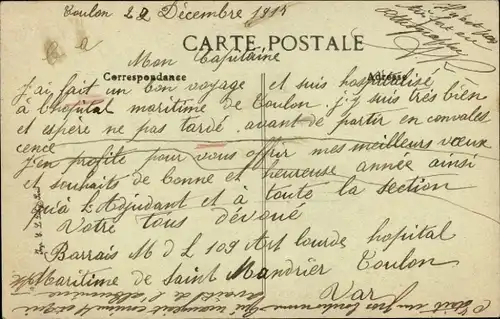 Toulon 22 Décembre 1915
CARTE POSTALE
Mon Capitaine
Correspondance
Adresse
J'ai fait un bon voyage et suis hospitalisé
à l'hopital maritime de Toulon. j'y suis très bien
et espère ne pas tardé avant de partir en convales
cence
J'en profite pour vous offrir mes meilleurs vœux
et souhaits de bonne et heureuse année ainsi
qu'à L'Adjudant et à toute la section
Votre tous dévoué
Barrais M d L 109 Art lourde hopital
Maritime de Saint Mandrier Toulon
Var
C'était un gros bonhomme qui